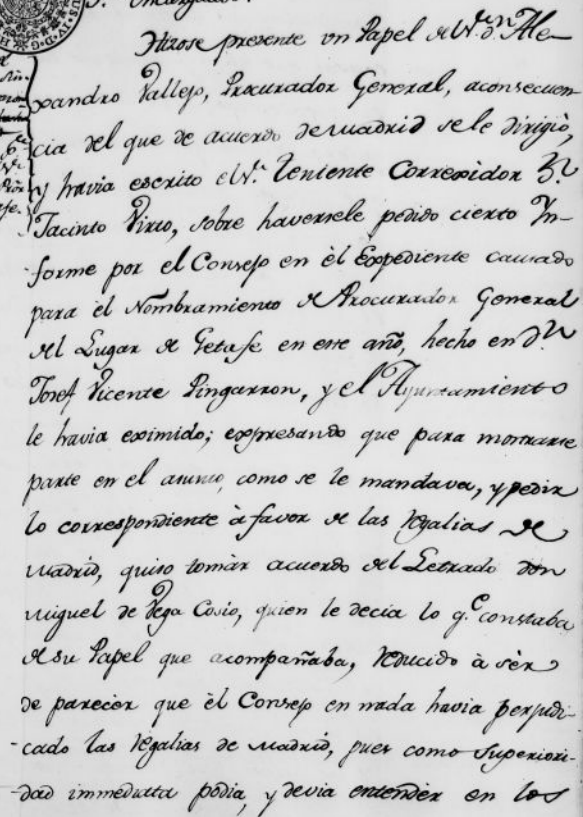 Hizose presente un Papel del Sr. Dn. Ale-
xandro Vallejo, Procurador General, aconsecuen-
cia del que de acuerdo de Madrid se le dirigió,
y havia escrito el Sr. Teniente Correxidor Dn.
Jacinto Virto, sobre haversele pedido cierto In-
forme por el Consejo en èl Expediente causado
para èl Nombramiento de Procurador General
del Lugar de Getafe en este año, hecho en Dn.
Josef Vicente Pingarron, y el Ayuntamiento
le havia eximido; expresando que para mostrarse
parte en el asunto, como se le mandava, y pedir
lo correspondiente à favor de las regalias de
Madrid, quiso tomàr acuerdo del Letrado don
Miguel de Vega Cosio, quien le decia lo qe. constaba
de su Papel que acompañaba, reducido à sèr
de parecer que èl Consejo en nada havia perjudi-
-cado las regalias de Madrid, pues como Superiori-
-dad immediata podia, y devia entender en los